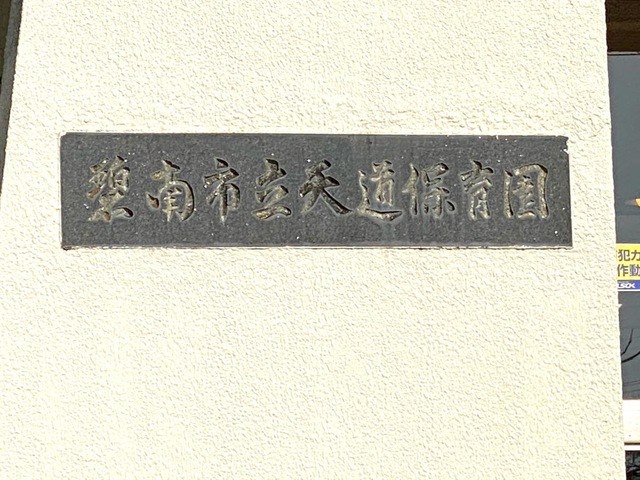 碧南市立天道保育園
犯カ
作動